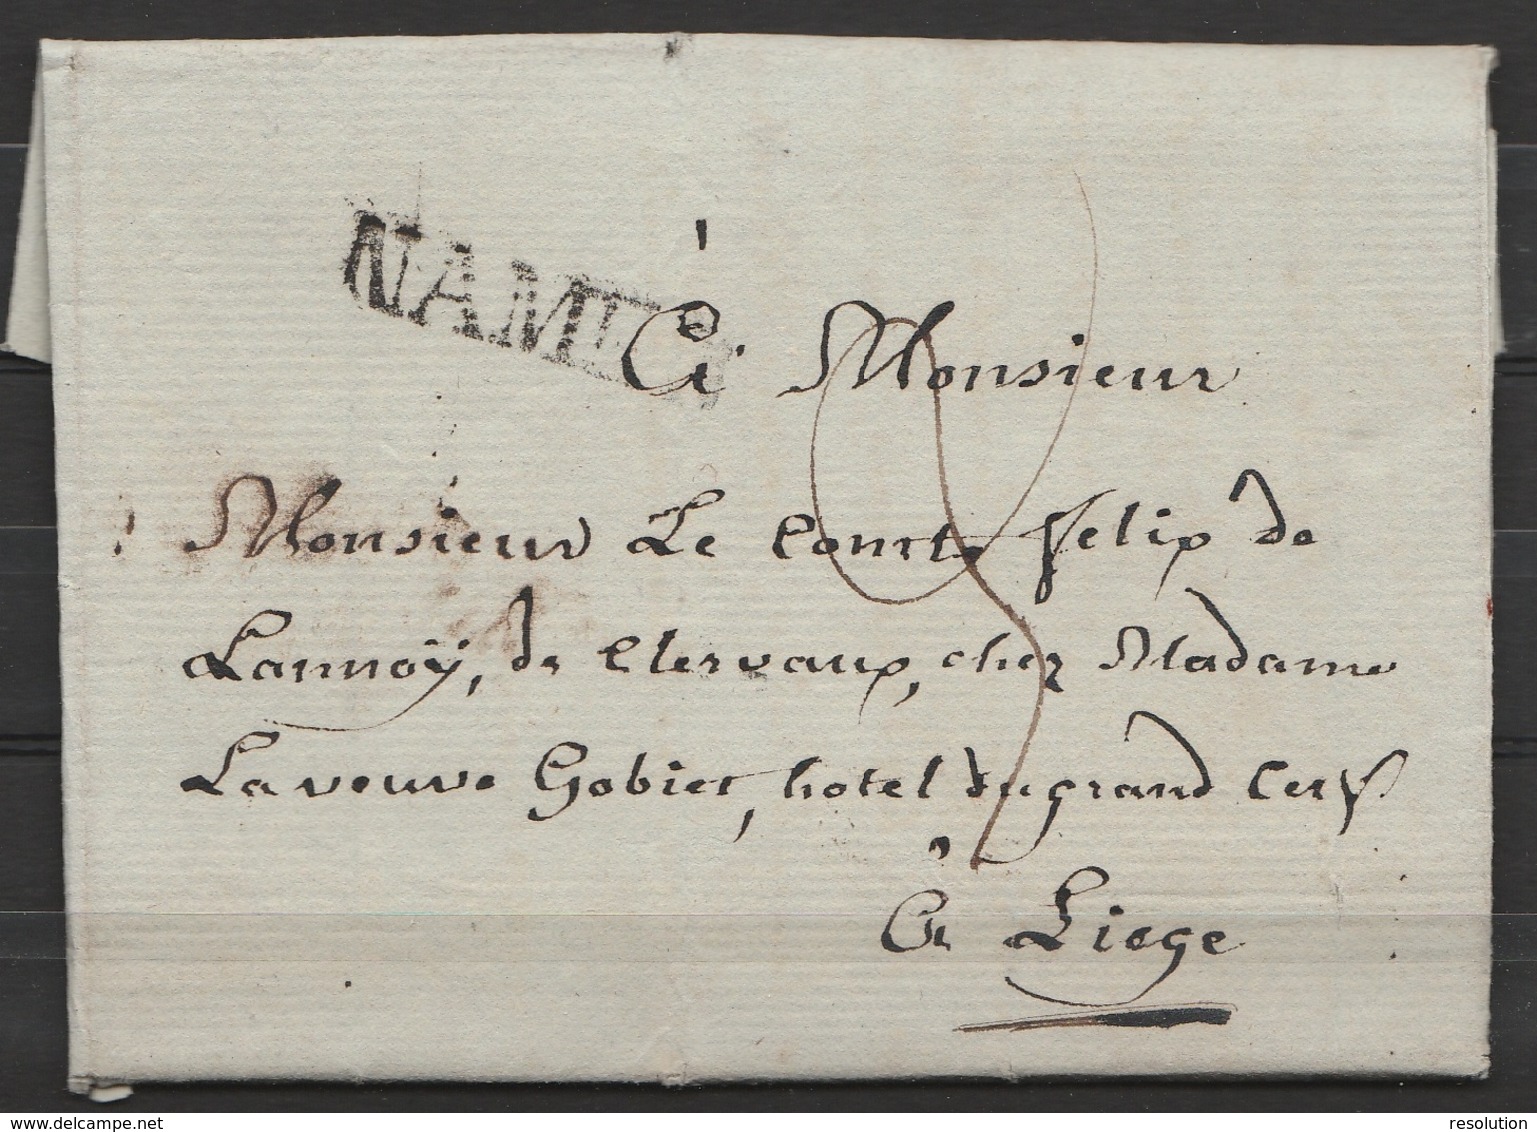 NAMUR
À Monsieur
Monsieur Le Comte Felix de
Lannoÿ, de Clervaux, chez Madame
La veuve Gobiet, hotel du grand Cerf
à Liege
www.delcampe.net
resolution